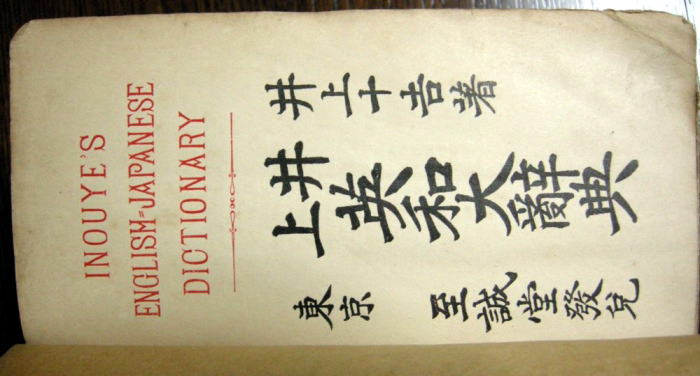 INOUYE'S
ENGLISH=JAPANESE
DICTIONARY
井上十吉著
井上英和大辭典
東京 至誠堂發兌